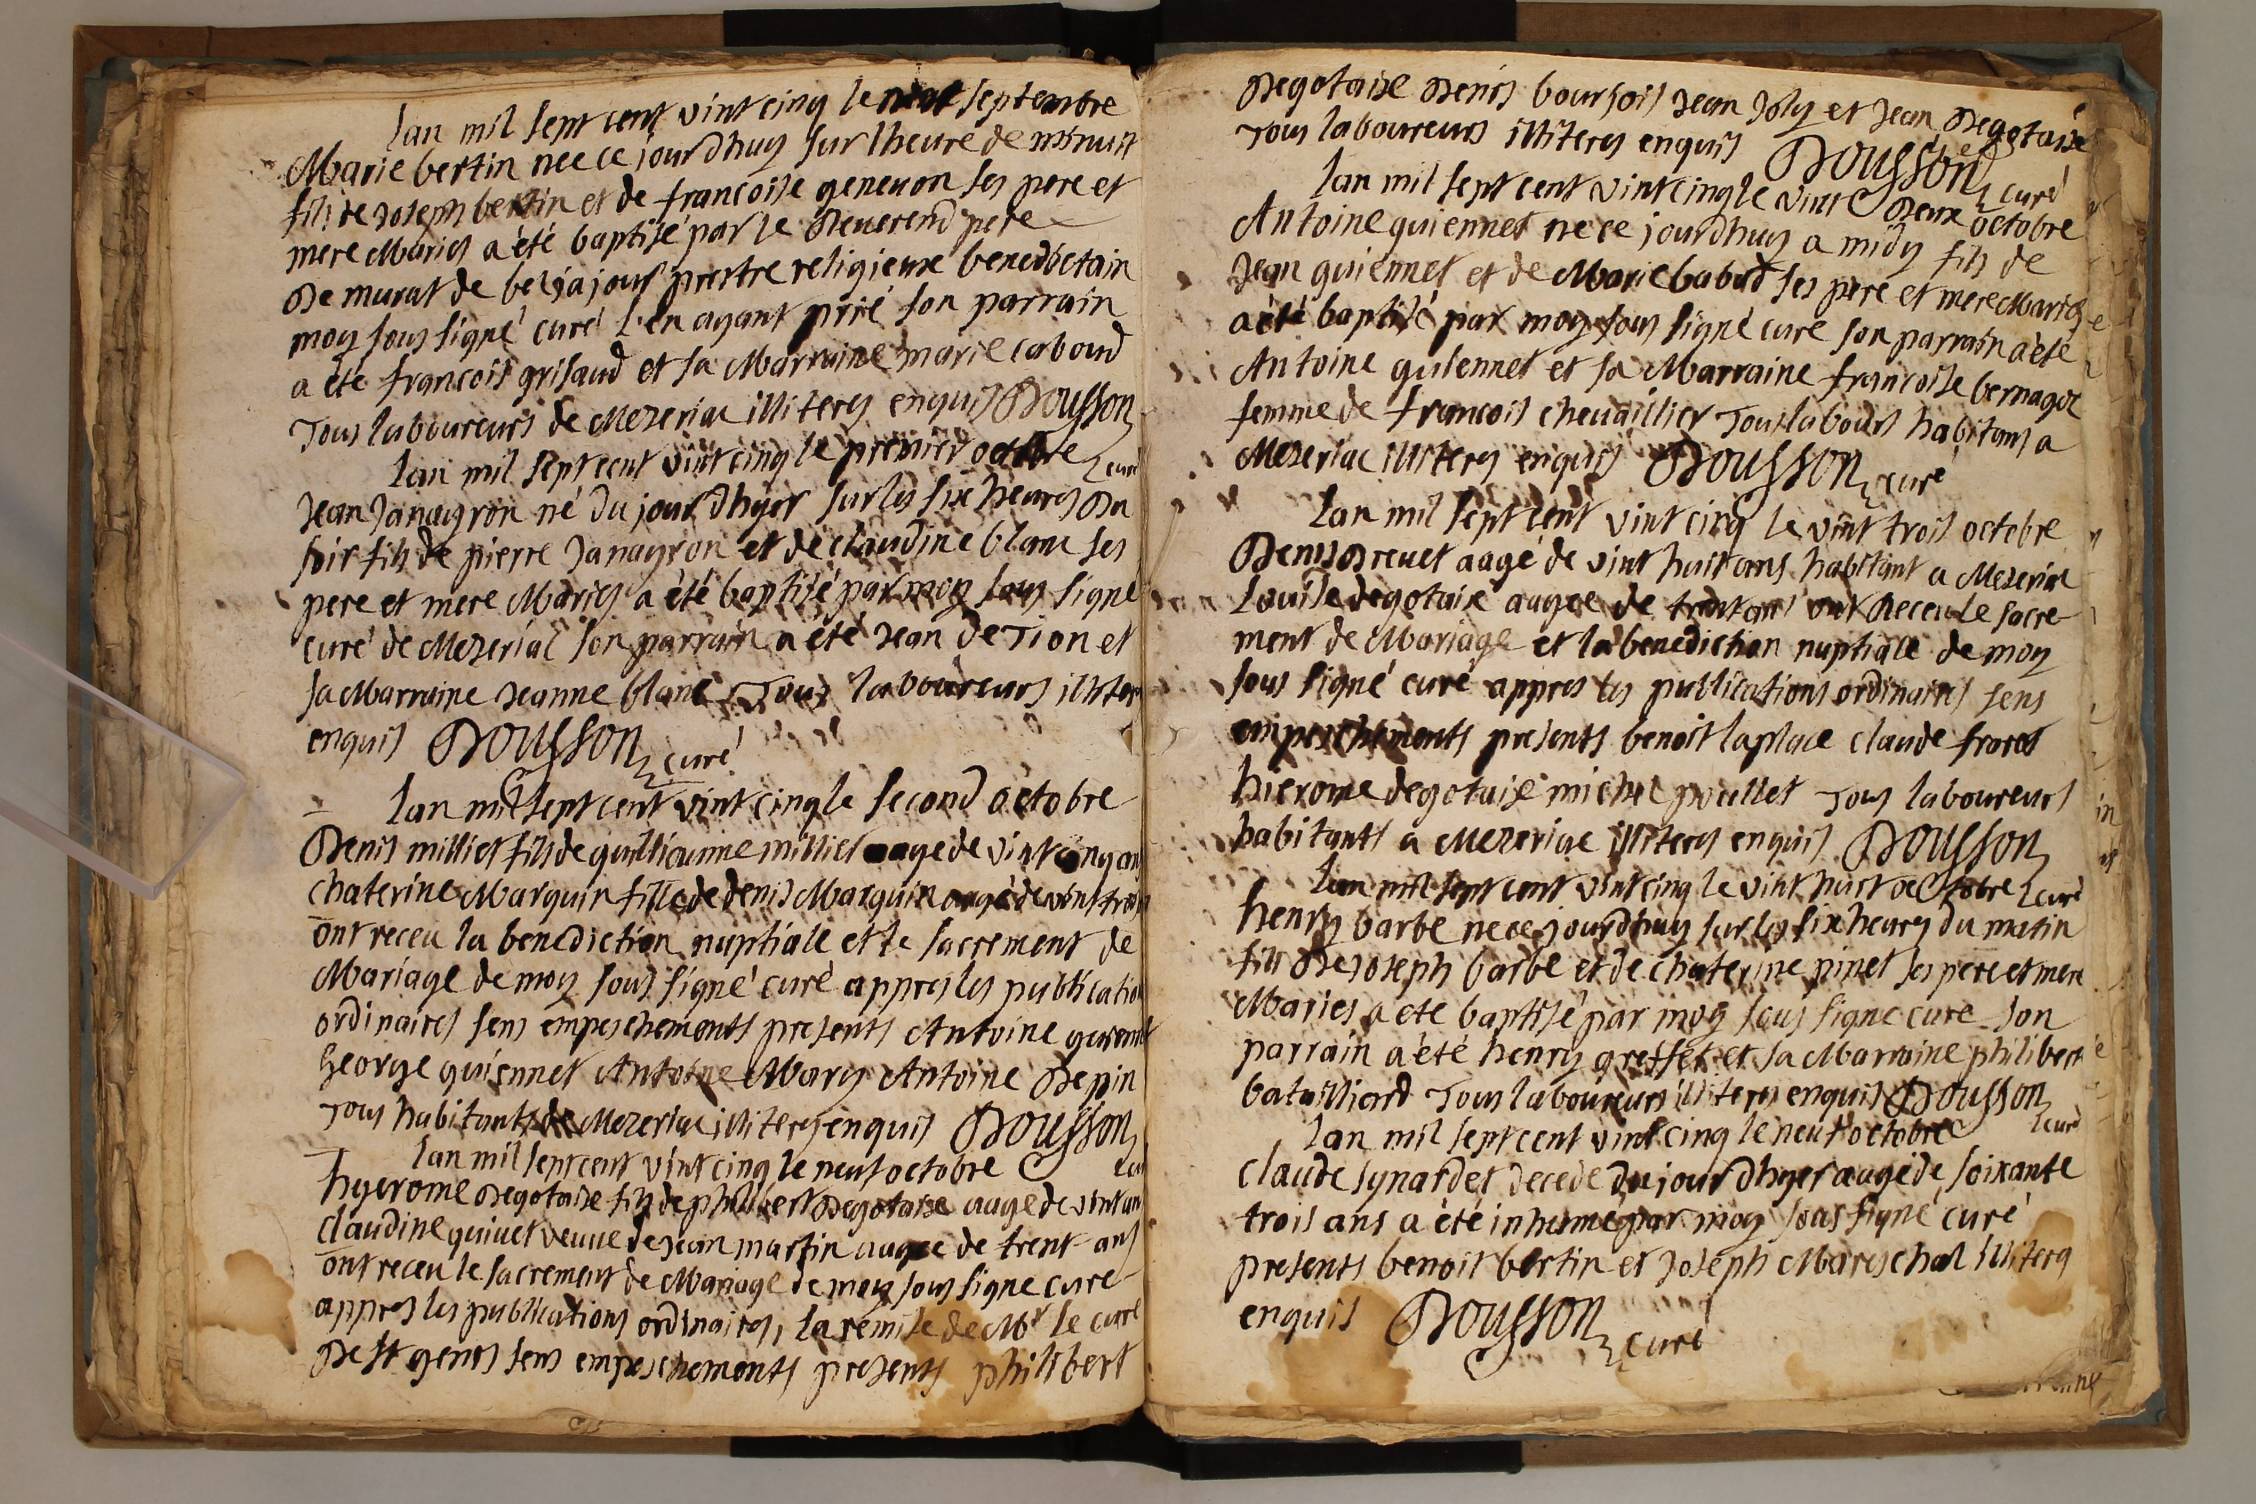 lan mil sept cent vint cinq le septembre
Marie bertin nee ce jourdhuy sur lheure de minuit
fille de Joseph bertin et de francoise geneuon ses pere et
mere Maries a été baptisé par le Reuerend pere
De murat de prestre religieux benedictain
moy sous signé curé l'en ayant prié son parrain
a été francois grisaud et sa Marraine marie caboud
Tous laboureurs de Mezeriac illiterés enquis Dousson
curé
lan mil sept cent vint cinq le premier octobre
Jean Janayron né du jour dhyer sur les six heures Du
soir fils de pierre Janayron et de claudine blanc ses
pere et mere Maries a été baptisé par moy sous signé
curé de Mezeriac son parrain a été Jean deTion et
sa Marraine Jeanne blanc Tous laboureurs illiter
enquis Dousson curé
lan mil sept cent vint cinq le second octobre
Denis milliet fils de guillieaume milliet aagé de vint cinq ans
chaterine Marquin fille de denis Marquin aagé de vint trois
ont receu la benediction nuptiale et le sacrement de
Mariage de moy sous signé curé appres les publication
ordinaires sens empeschements presents Antoine
George guiennet Antoine Mary Antoine Depin
Tous habitants de Mezeriac illiterés enquis Dousson
cur
lan mil sept cent vint cinq le neuf octobre
hyerome Degotaise fils de philibert Degotaise aagé de vint ans
claudine guiuet veuue de Jean martin aagée de trent ans
ont receu le sacrement de Mariage de moy sous signé curé
appres les publications ordinaires, la remise de Mr le curé
De st genis sens empeschements presents philibert
Degotaise Denis boursois Jean Joly et Jean Degotaise
Tous laboureurs illiterés enquis Dousson curé
lan mil sept cent vint cinq le vint Deux octobre
Antoine guiennet né ce jourdhuy a midy fils de
Jean guiennet et de Marie babad ses pere et mere Maries
a été baptisé par moy sous signé curé son parrain a été
Antoine guiennet et sa Marraine francoise bernagoz
femme de francois cheuaillier Tous labours habitans a
Mezeriac illiterés enquis Dousson curé
lan mil sept cent vint cinq le vint trois octobre
Denis Dreuet aagé de vint huit ans habitant a Mezeriac
Louise degotaise aagée de trent ans ont Receu le sacre-
ment de Mariage et la benediction nuptiale de moy
sous signé curé appres les publications ordinaires sens
empeschements presents benoit laplace claude
hierome degotaise michel poullet Tous laboureurs
habitants a Mezeriac illiterés enquis Dousson
curé
lan mil sept cent vint cinq le vint huit octobre
henry barbe né ce jourdhuy sur les six heures du matin
fils De Joseph barbe et de chaterine pinet ses pere et mere
Maries a été baptisé par moy sous signé curé son
parrain a été henry greffet et sa Marraine philiberte
batailliard Tous laboureurs illiterés enquis Dousson
curé
lan mil sept cent vint cinq le neuf octobre
claude synardet decedé du jour dhyer aagé de soixante
trois ans a été inhumé par moy sous signé curé
presents benoit bertin et Joseph Mareschal illiterés
enquis Dousson curé